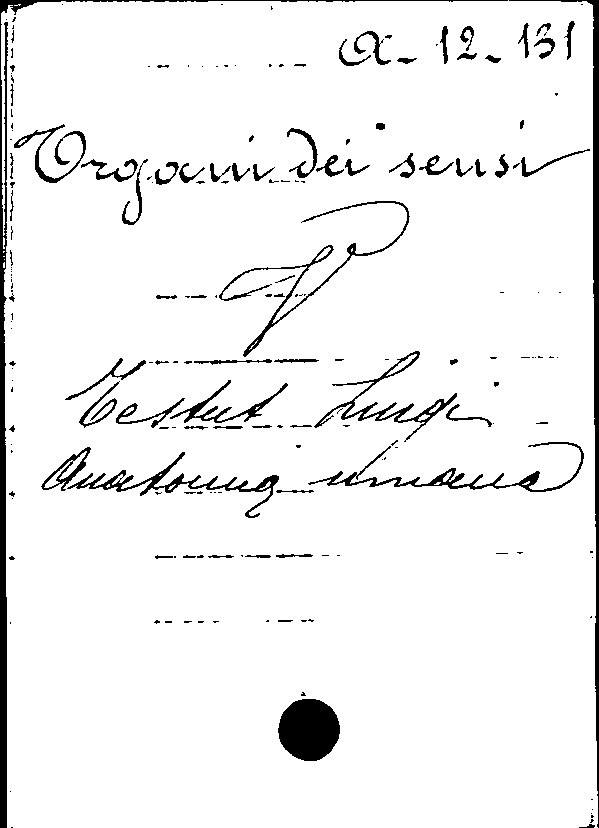 A-12-131
Organi dei sensi
V
Testut Luigi
Anatomia umana